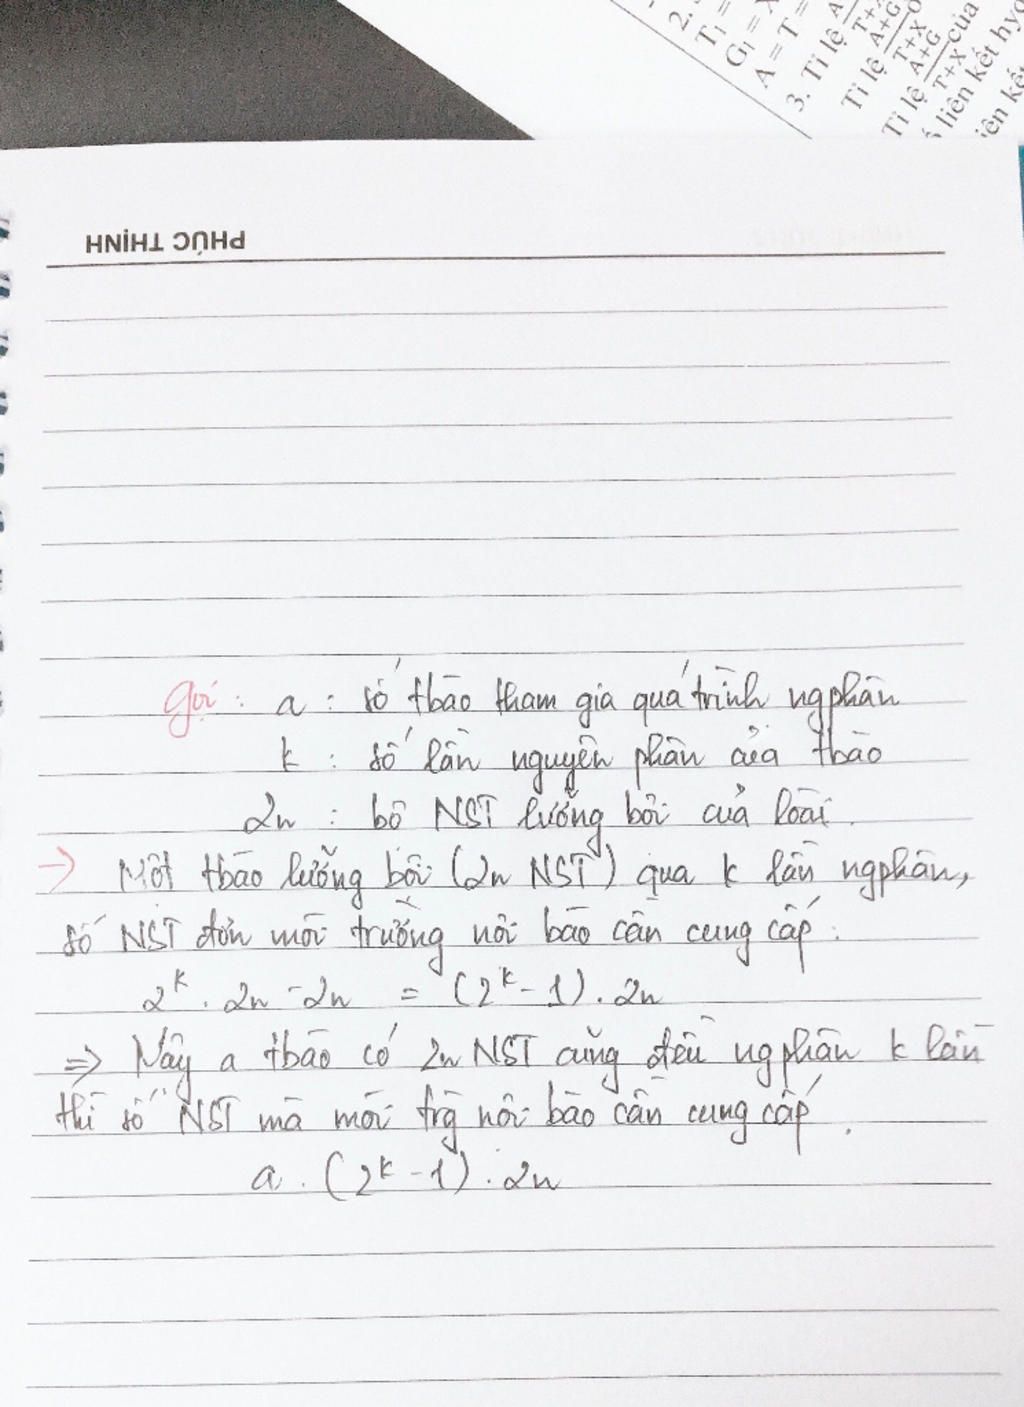 2.
T₁ =
G₁ = X
A = T =
3. Tỉ lệ
Tỉ lệ A+G/T+X
Tỉ lệ A+G/T+X của
liên kết hyd
PHÚC THỊNH
Gọi : a : số tbào tham gia quá trình ngphân
k : số lần nguyên phân của tbào
2n : bộ NST lưỡng bội của loài.
→ Một tbào lưỡng bội (2n NST) qua k lần ngphân,
số NST đơn môi trường nội bào cần cung cấp :
2ᵏ . 2n - 2n = (2ᵏ - 1) . 2n
⇒ Nay a tbào có 2n NST cũng đều ngphân k lần
thì số NST mà môi trg nội bào cần cung cấp .
a . (2ᵏ - 1) . 2n